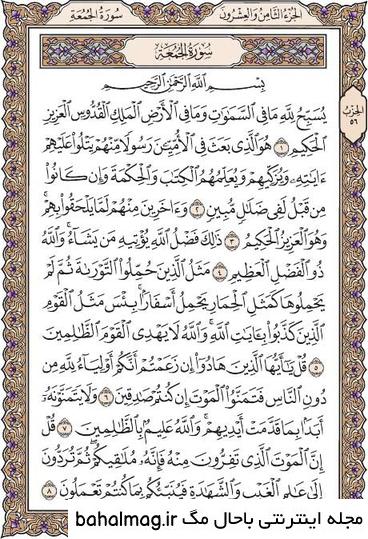 سُورَةُ الجُمُعَةِ
الجُزْءُ الثَّامِنُ وَالعِشْرُونَ
سُورَةُ الجُمُعَةِ
الحِزْبُ
٥٦
بِسْمِ اللَّهِ الرَّحْمَٰنِ الرَّحِيمِ
يُسَبِّحُ لِلَّهِ مَا فِي السَّمَٰوَٰتِ وَمَا فِي الْأَرْضِ الْمَلِكِ الْقُدُّوسِ الْعَزِيزِ
الْحَكِيمِ ١ هُوَ الَّذِي بَعَثَ فِي الْأُمِّيِّـۧنَ رَسُولًا مِّنْهُمْ يَتْلُوا۟ عَلَيْهِمْ
ءَايَٰتِهِۦ وَيُزَكِّيهِمْ وَيُعَلِّمُهُمُ الْكِتَٰبَ وَالْحِكْمَةَ وَإِن كَانُوا۟
مِن قَبْلُ لَفِي ضَلَٰلٍ مُّبِينٍ ٢ وَءَاخَرِينَ مِنْهُمْ لَمَّا يَلْحَقُوا۟ بِهِمْ ۚ
وَهُوَ الْعَزِيزُ الْحَكِيمُ ٣ ذَٰلِكَ فَضْلُ اللَّهِ يُؤْتِيهِ مَن يَشَآءُ ۚ وَاللَّهُ
ذُو الْفَضْلِ الْعَظِيمِ ٤ مَثَلُ الَّذِينَ حُمِّلُوا۟ التَّوْرَىٰةَ ثُمَّ لَمْ
يَحْمِلُوهَا كَمَثَلِ الْحِمَارِ يَحْمِلُ أَسْفَارًۢا ۚ بِئْسَ مَثَلُ الْقَوْمِ
الَّذِينَ كَذَّبُوا۟ بِـَٔايَٰتِ اللَّهِ ۚ وَاللَّهُ لَا يَهْدِي الْقَوْمَ الظَّٰلِمِينَ
٥ قُلْ يَٰٓأَيُّهَا الَّذِينَ هَادُوٓا۟ إِن زَعَمْتُمْ أَنَّكُمْ أَوْلِيَآءُ لِلَّهِ مِن
دُونِ النَّاسِ فَتَمَنَّوُا۟ الْمَوْتَ إِن كُنتُمْ صَٰدِقِينَ ٦ وَلَا يَتَمَنَّوْنَهُۥٓ
أَبَدًۢا بِمَا قَدَّمَتْ أَيْدِيهِمْ ۚ وَاللَّهُ عَلِيمٌۢ بِالظَّٰلِمِينَ ٧ قُلْ
إِنَّ الْمَوْتَ الَّذِي تَفِرُّونَ مِنْهُ فَإِنَّهُۥ مُلَٰقِيكُمْ ۖ ثُمَّ تُرَدُّونَ
إِلَىٰ عَٰلِمِ الْغَيْبِ وَالشَّهَٰدَةِ فَيُنَبِّئُكُم بِمَا كُنتُمْ تَعْمَلُونَ ٨
مجله اینترنتی باحال مگ bahalmag.ir